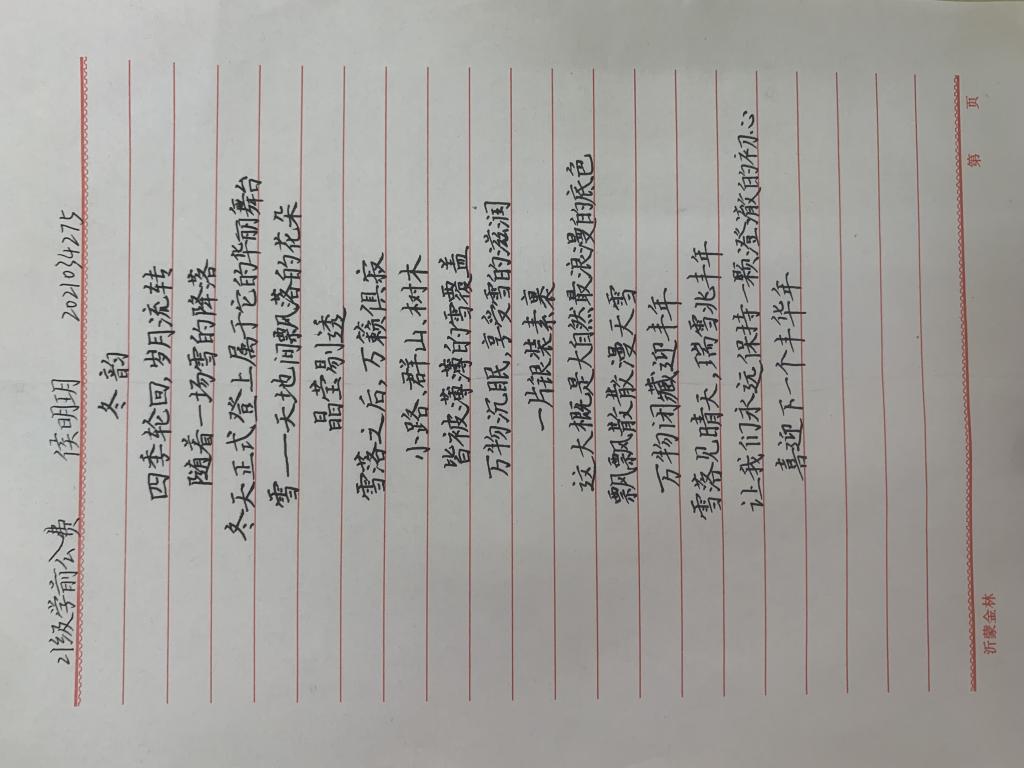 21级学前公费 侯明玥 2021034275
冬韵
四季轮回,岁月流转
随着一场雪的降落
冬天正式登上属于它的华丽舞台
雪——天地间飘落的花朵
晶莹剔透
雪落之后,万籁俱寂
小路、群山、树木
皆被薄薄的雪覆盖
万物沉眠,享受雪的滋润
一片银装素裹
这大概是大自然最浪漫的底色
飘飘散散漫天雪
万物闭藏迎丰年
雪落见晴天,瑞雪兆丰年
让我们永远保持一颗澄澈的初心
喜迎下一个丰华年
沂蒙金林 第 页